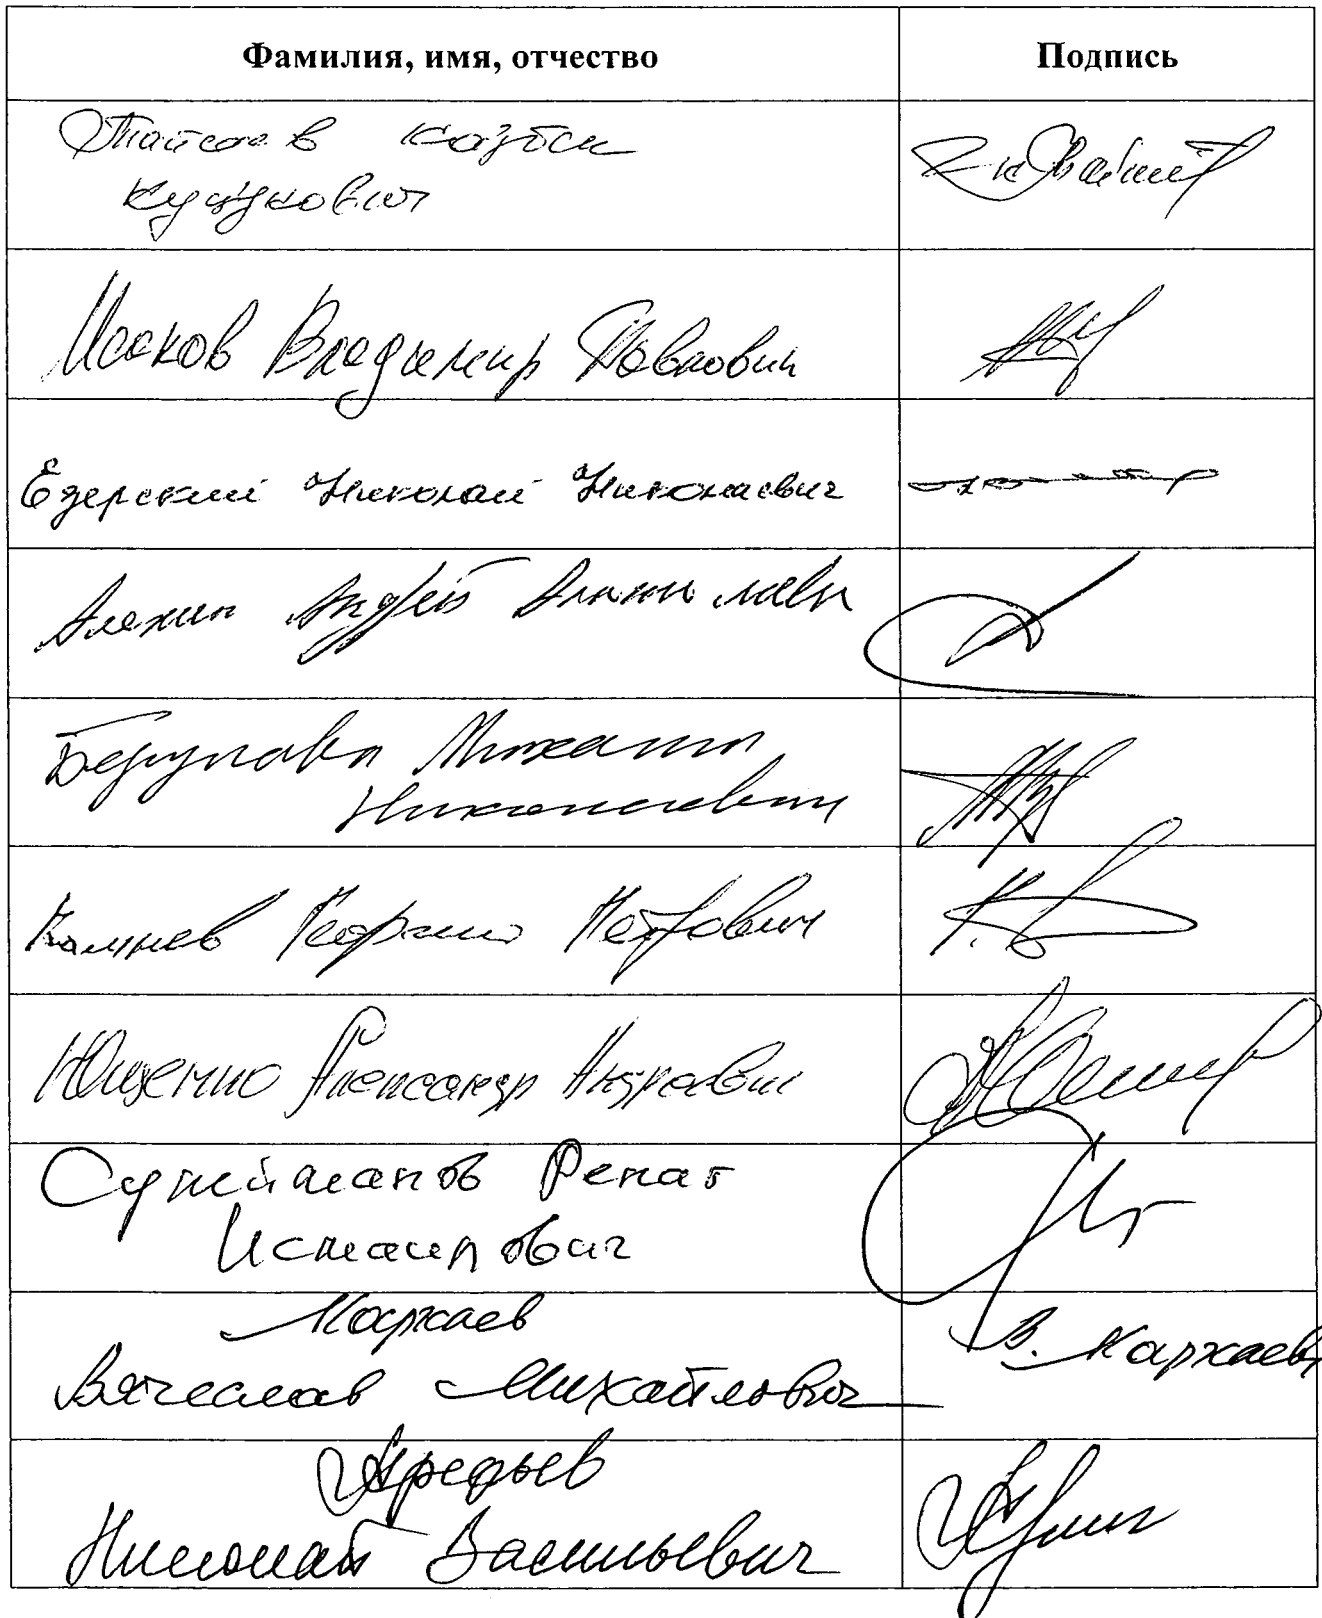 Фамилия, имя, отчество
Подпись
Тайсаев Казбек
Куцукович
Исаков Владимир Павлович
Езерский Николай Николаевич
Алехин Андрей Анатольевич
Берулава Михаил
Николаевич
Камнев Георгий Петрович
Ющенко Александр Андреевич
Сулейманов Ренат
Исмаилович
Мархаев
Вячеслав Михайлович
В. Мархаев
Арефьев
Николай Васильевич